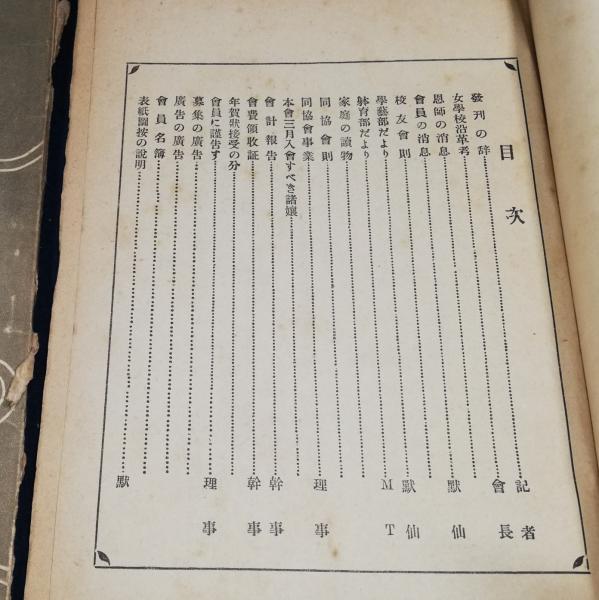 目次
發刊の辞 記者
女學校沿革考 會長
恩師の消息
會員の消息 默仙
校友會則
學藝部だより 默仙
躰育部だより MT
家庭の讀物
同協會則
同協會事業 理事
本會三月入會すべき諸孃
會計報告 幹事
會費領收証 幹事
年賀狀接受の分
會員に謹告す 理事
募集の廣告
廣告の廣告
會員名簿
表紙圖按の說明 默